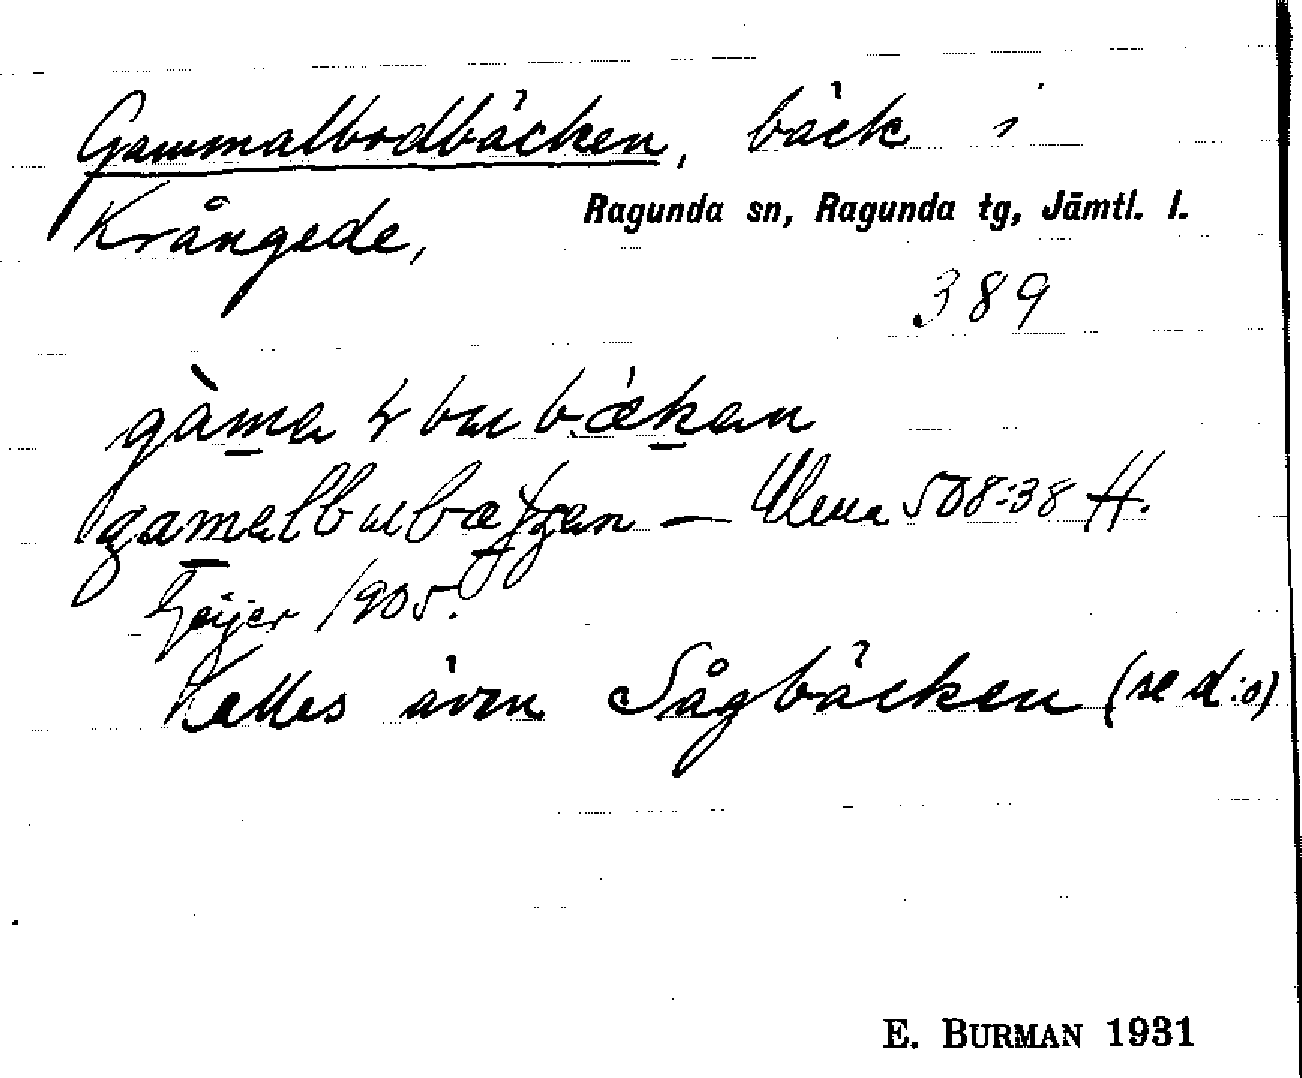 Gammalbodbäcken, bäck i
Krångede, Ragunda sn, Ragunda tg, Jämtl. l.
389
gàma bubækan
gamalbubæ — 508:38 H.
Geijer 1905.
Kallas även Sågbäcken (se d:o)
E. BURMAN 1931